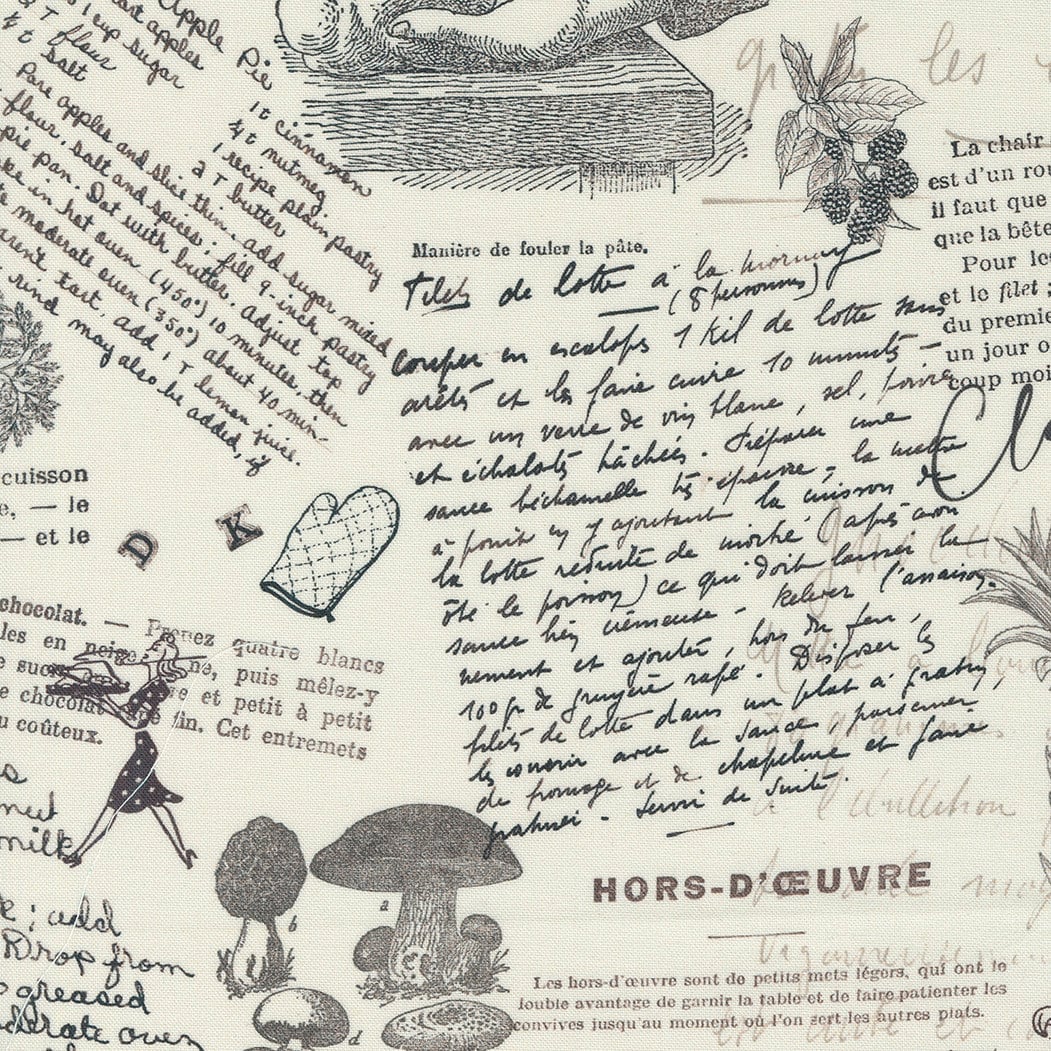 Apple Pie
tart apples
1 cup sugar
T flour
t salt
1 t cinnamon
¼ t nutmeg
1 recipe plain pastry
2 T butter
Pare apples and slice thin, add sugar mixed
flour, salt and spices; fill 9-inch pastry
pie pan. Dot with butter. Adjust top
in hot oven (450°) 10 minutes, then
moderate oven (350°) about 40 min-
tart, add 1 T lemon juice.
rind may also be added, if
Manière de fouler la pâte.
Filets de lotte à la mornay
(8 personnes)
Couper en escalops 1 kil de lotte sans
arêtes et les faire cuire 10 minutes -
avec un verre de vin blanc, sel, poivre
et échalots hâchées. Préparer une
sauce béchamelle très épaisse, la mettre
à point en y ajoutant la cuisson de
la lotte réduite de moitié (après avoir
ôté le poisson) ce qui doit laisser la
sauce très crémeuse - Relever l'assaison-
nement et ajouter, hors du feu,
100 gr de gruyère rapé. Disposer les
filets de lotte dans un plat à gratin,
les couvrir avec la sauce, parsemer
de fromage et de chapelure et faire
gratiner - Servir de suite.
La chair
est d'un rou
il faut que
que la bête
Pour les
et le filet ;
du premie
un jour o
coup moi
cuisson
e, — le
— et le
D K
chocolat. — Prenez quatre blancs
les en neige, puis mêlez-y
e suc et petit à petit
e chocolat fin. Cet entremets
u coûteux.
milk
; add
Drop from
greased
oven
a
b
d
les
l'ébullition
HORS-D'ŒUVRE
Les hors-d'œuvre sont de petits mets légers, qui ont le
double avantage de garnir la table et de faire patienter les
convives jusqu'au moment où l'on sert les autres plats.